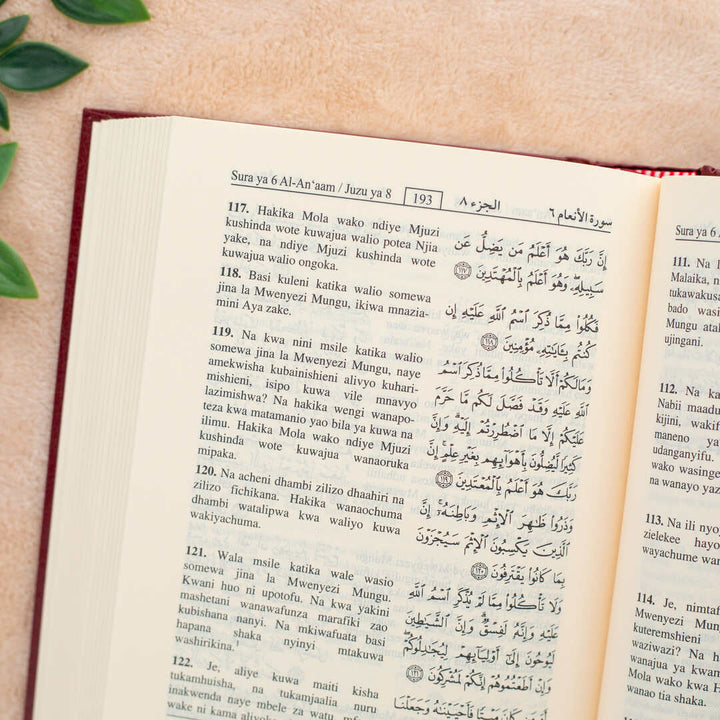 Sura ya 6 Al-An'aam / Juzu ya 8 193 الجزء ٨ سورة الأنعام ٦
117. Hakika Mola wako ndiye Mjuzi
kushinda wote kuwajua walio potea Njia
yake, na ndiye Mjuzi kushinda wote
kuwajua walio ongoka.
118. Basi kuleni katika walio somewa
jina la Mwenyezi Mungu, ikiwa mnazia-
mini Aya zake.
119. Na kwa nini msile katika walio
somewa jina la Mwenyezi Mungu, naye
amekwisha kubainishieni alivyo kuhari-
mishieni, isipo kuwa vile mnavyo
lazimishwa? Na hakika wengi wanapo-
teza kwa matamanio yao bila ya kuwa na
ilimu. Hakika Mola wako ndiye Mjuzi
kushinda wote kuwajua wanaoruka
mipaka.
120. Na acheni dhambi zilizo dhaahiri na
zilizo fichikana. Hakika wanaochuma
dhambi watalipwa kwa waliyo kuwa
wakiyachuma.
121. Wala msile katika wale wasio
somewa jina la Mwenyezi Mungu.
Kwani huo ni upotofu. Na kwa yakini
mashetani wanawafunza marafiki zao
kubishana nanyi. Na mkiwafuata basi
hapana shaka nyinyi mtakuwa
washirikina.¹
122. Je, aliye kuwa maiti kisha
tukamhuisha, na tukamjaalia nuru
inakwenda naye mbele za watu mfano
wake ni kama aliyoko
إِنَّ رَبَّكَ هُوَ أَعْلَمُ مَن يَضِلُّ عَن
سَبِيلِهِۦ وَهُوَ أَعْلَمُ بِٱلْمُهْتَدِينَ ١١٧
فَكُلُوا۟ مِمَّا ذُكِرَ ٱسْمُ ٱللَّهِ عَلَيْهِ إِن
كُنتُم بِـَٔايَـٰتِهِۦ مُؤْمِنِينَ ١١٨
وَمَا لَكُمْ أَلَّا تَأْكُلُوا۟ مِمَّا ذُكِرَ ٱسْمُ
ٱللَّهِ عَلَيْهِ وَقَدْ فَصَّلَ لَكُم مَّا حَرَّمَ
عَلَيْكُمْ إِلَّا مَا ٱضْطُرِرْتُمْ إِلَيْهِ وَإِنَّ
كَثِيرًا لَّيُضِلُّونَ بِأَهْوَآئِهِم بِغَيْرِ عِلْمٍ إِنَّ
رَبَّكَ هُوَ أَعْلَمُ بِٱلْمُعْتَدِينَ ١١٩
وَذَرُوا۟ ظَـٰهِرَ ٱلْإِثْمِ وَبَاطِنَهُۥٓ إِنَّ
ٱلَّذِينَ يَكْسِبُونَ ٱلْإِثْمَ سَيُجْزَوْنَ
بِمَا كَانُوا۟ يَقْتَرِفُونَ ١٢٠
وَلَا تَأْكُلُوا۟ مِمَّا لَمْ يُذْكَرِ ٱسْمُ ٱللَّهِ
عَلَيْهِ وَإِنَّهُۥ لَفِسْقٌ وَإِنَّ ٱلشَّيَـٰطِينَ
لَيُوحُونَ إِلَىٰٓ أَوْلِيَآئِهِمْ لِيُجَـٰدِلُوكُمْ
وَإِنْ أَطَعْتُمُوهُمْ إِنَّكُمْ لَمُشْرِكُونَ ١٢١
أَوَمَن كَانَ مَيْتًا فَأَحْيَيْنَـٰهُ وَجَعَلْنَا
Sura ya 6
111. Na l
Malaika, n
tukawakusa
bado wasi
Mungu atak
ujingani.
112. Na ka
Nabii maadu
kijini, wakif
maneno ya
udanganyifu.
wako wasinge
na wanayo yaz
113. Na ili nyo
zielekee hayo
wayachume wan
114. Je, nimtaf
Mwenyezi Mun
kuteremshieni
waziwazi? Na h
wanajua ya kwam
Mola wako kwa H
wanao tia shaka.